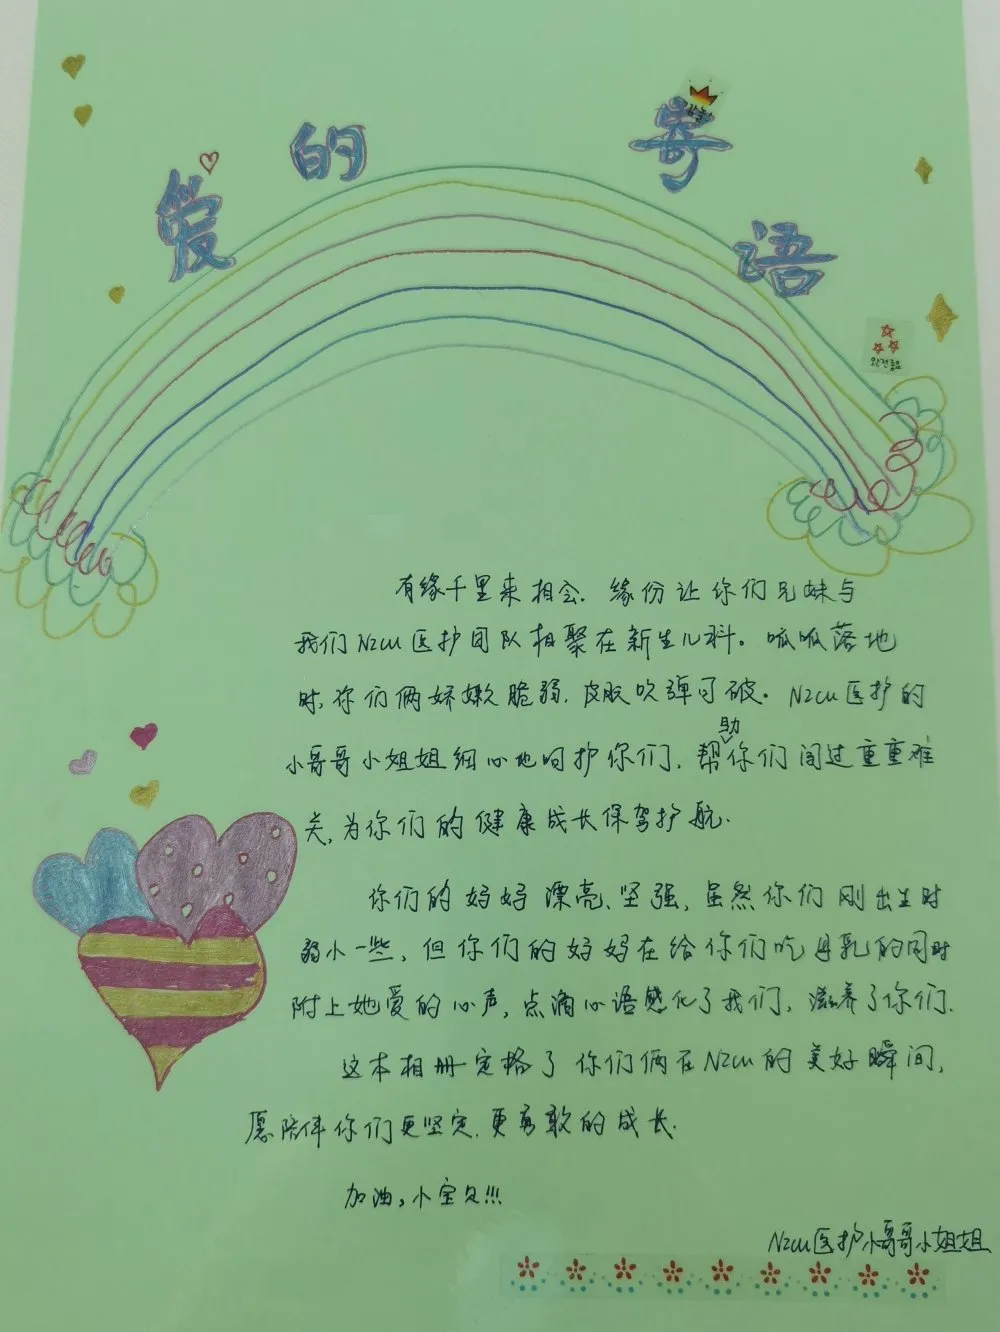 爱的寄语
有缘千里来相会.缘份让你们兄妹与
我们Nzcu医护团队相聚在新生儿科。呱呱落地
时,你们俩娇嫩脆弱,皮肤吹弹可破。Nzcu医护的
小哥哥小姐姐细心地呵护你们,帮助你们闯过重重难
关,为你们的健康成长保驾护航.
你们的妈妈漂亮、坚强,虽然你们刚出生时
弱小一些,但你们的妈妈在给你们吃母乳的同时
附上她爱的心声,点滴心语感化了我们,滋养了你们.
这本相册定格了你们俩在Nzcu的美好瞬间,
愿陪伴你们更坚定.更勇敢的成长.
加油,小宝贝!!!
Nzcu医护小哥哥小姐姐